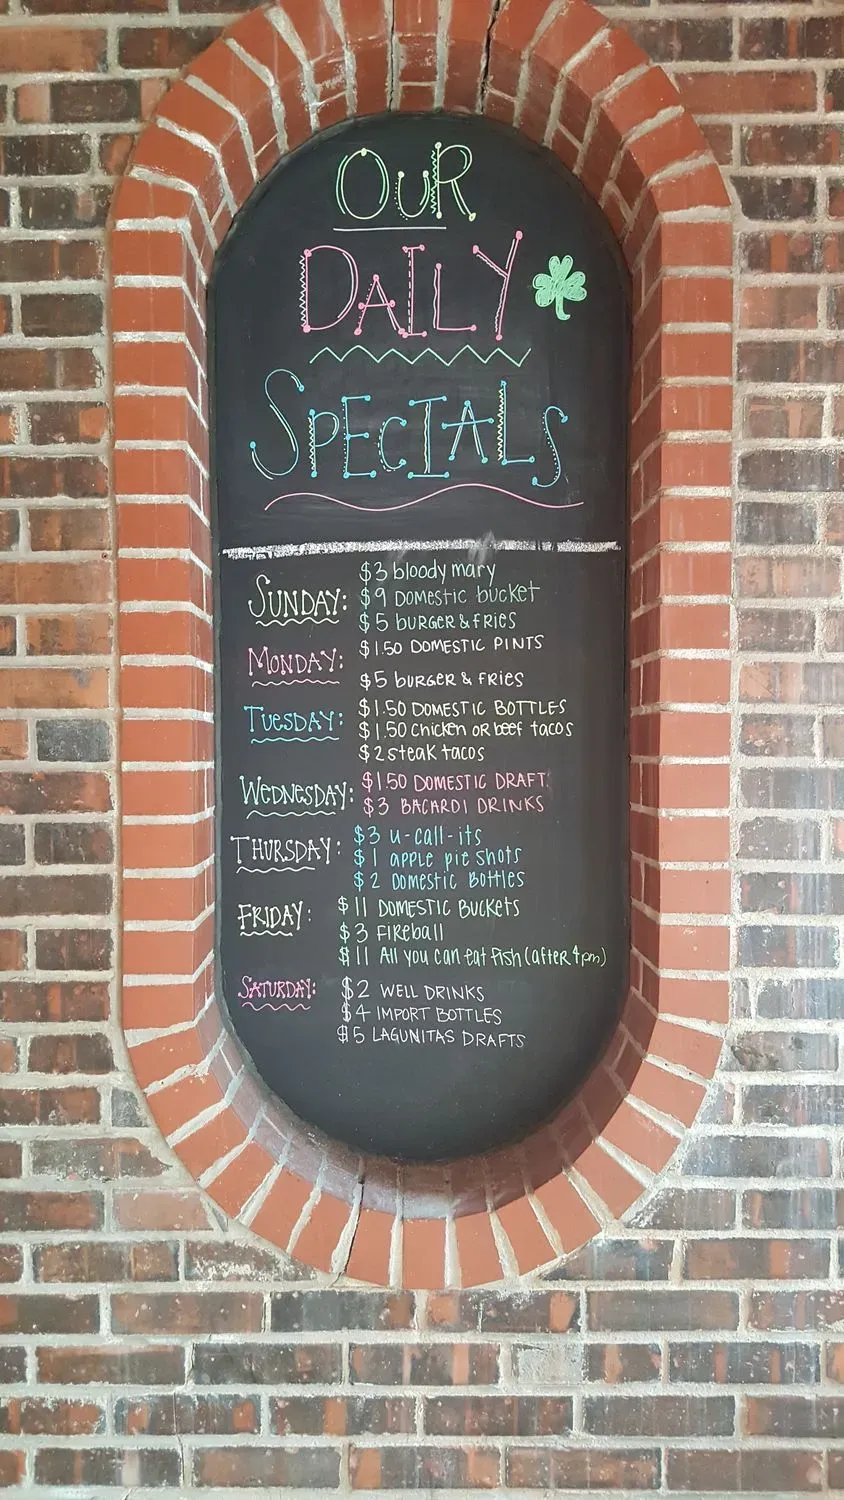 OUR
DAILY
SPECIALS
SUNDAY:
$3 bloody mary
$9 DOMESTIC bucket
$5 bURGER & FRIES
MONDAY:
$1.50 DOMESTIC PINTS
$5 bURGER & FRIES
TUESDAY:
$1.50 DOMESTIC BOTTLES
$1.50 chicken OR beef tacos
$2 steak tacos
WEDNESDAY:
$1.50 DOMESTIC DRAFT
$3 BACARDI DRINKS
THURSDAY:
$3 u-call-its
$1 apple pie shots
$2 Domestic Bottles
FRIDAY:
$11 DOMESTIC Buckets
$3 FIREball
$11 All you can eat fish (after 4pm)
SATURDAY:
$2 WELL DRINKS
$4 IMPORT BOTTLES
$5 LAGUNITAS DRAFTS